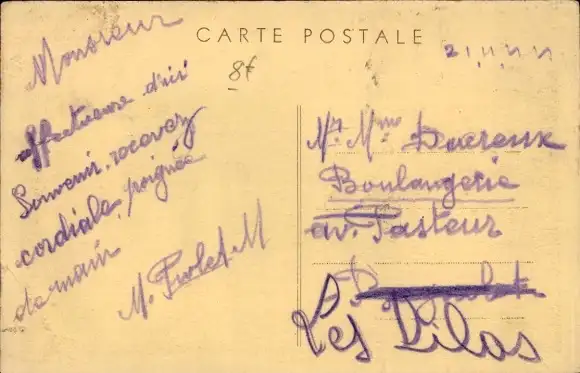 CARTE POSTALE
8f
Monsieur
affectueux d'ici
Souvenir, recevez
cordiale poignée
de main
M. M
Mr. Mme
Boulangerie
av. Pasteur
Les Lilas